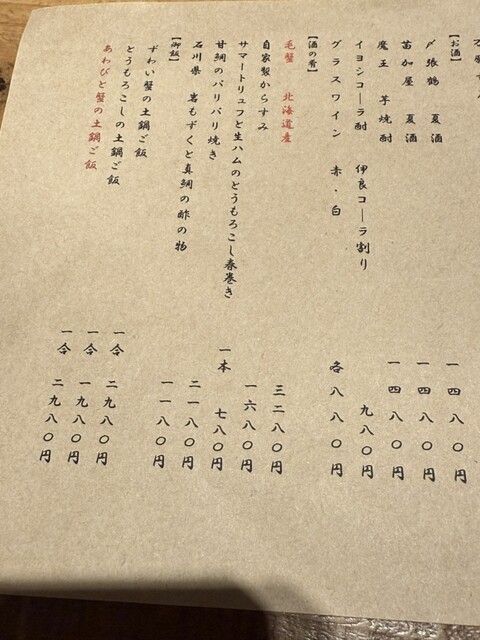 【お酒】
〆張鶴 夏酒 一四八〇円
苗加屋 夏酒 一四八〇円
魔王 芋焼酎 一四八〇円
イヨシコーラ酎 伊良コーラ割り 九八〇円
グラスワイン 赤・白 各八八〇円
【酒の肴】
毛蟹 北海道産 三二八〇円
自家製からすみ 一六八〇円
サマートリュフと生ハムのとうもろこし春巻き 一本 七八〇円
甘鯛のパリパリ焼き 二一八〇円
石川県 岩もずくと真鯛の酢の物 一一八〇円
【御飯】
ずわい蟹の土鍋ご飯 一合 二九八〇円
とうもろこしの土鍋ご飯 一合 一九八〇円
あわびと蟹の土鍋ご飯 一合 二九八〇円